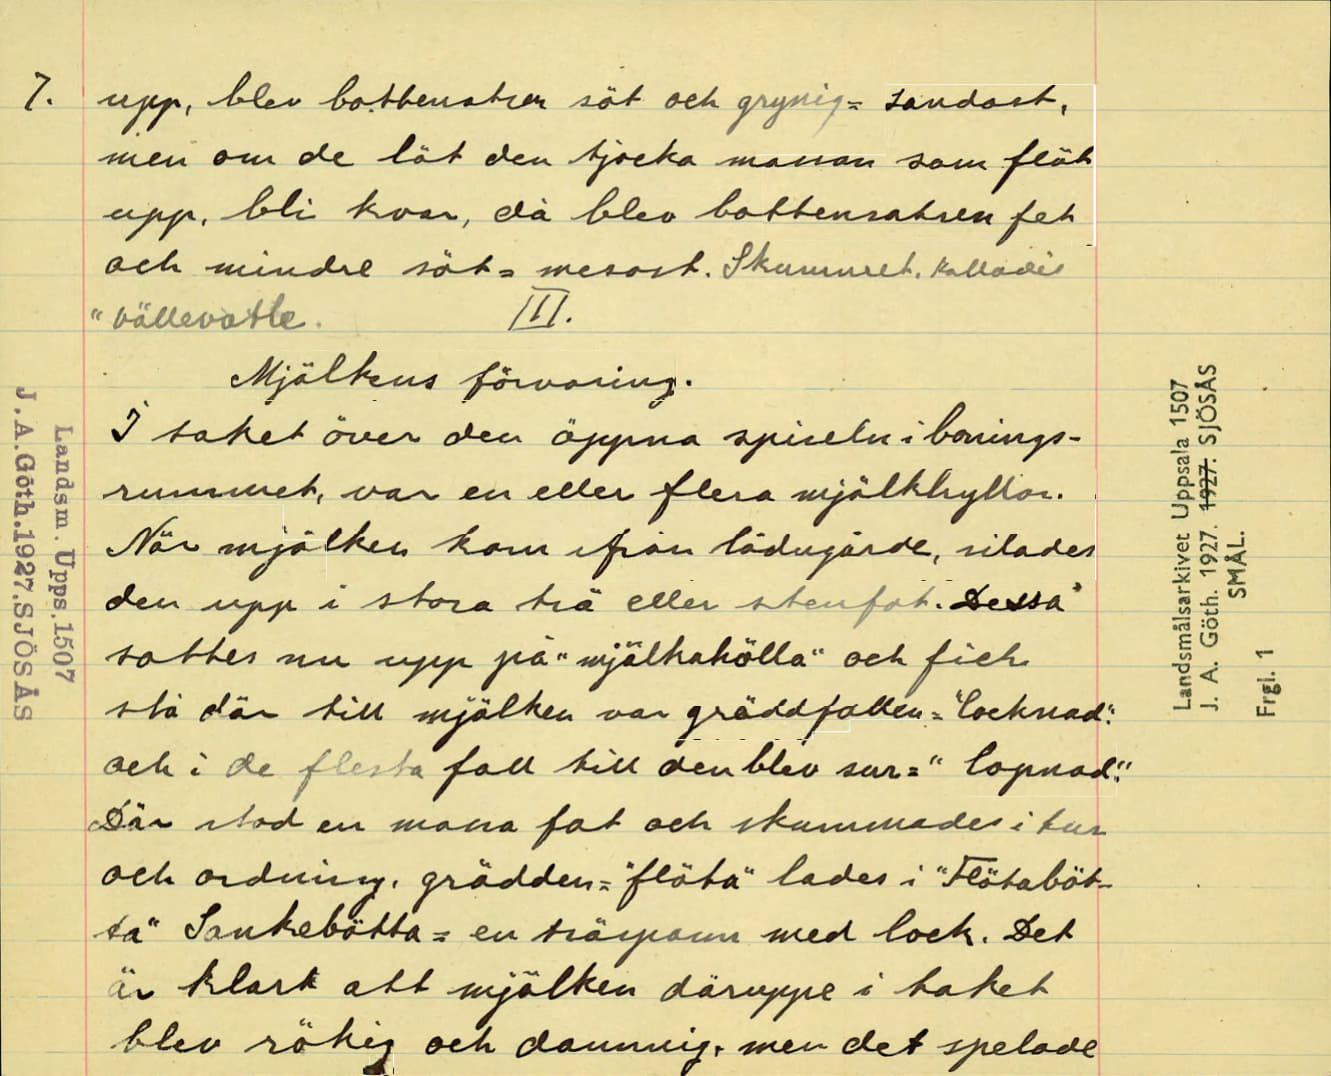 7.
upp, blev bottensatsen söt och grynig= sandost,
men om de lät den tjocka massan som flöt
upp, bli kvar, då blev bottensatsen fet
och mindre söt= mesost. Skummet, kallades
"vällevatle.
III.
Mjälkens förvaring.
I taket över den öppna spiseln i bonings-
rummet, var en eller flera mjälkhyllor.
När mjälken kom ifrån lådugårde, silades
den upp i stora trä eller stenfat. Dessa
sattes nu upp på "mjälkahölla" och fick
stå där till mjälken var gräddfallen= "locknad".
och i de flesta fall till den blev sur=" lopnad".
Där stod en massa fat och skummades i tur
och ordning. grädden= "flöta" lades i "Flötaböt-
ta" Sankebötta= en träspann med lock. Det
är klart att mjälken däruppe i taket
blev rökig och dammig. men det spelade
Landsm. Upps. 1507
J.A.Göth.1927.SJÖSÅS
Landsmålsarkivet Uppsala 1507
J. A. Göth. 1927. 1927. SJÖSÅS
SMÅL.
Frgl. 1